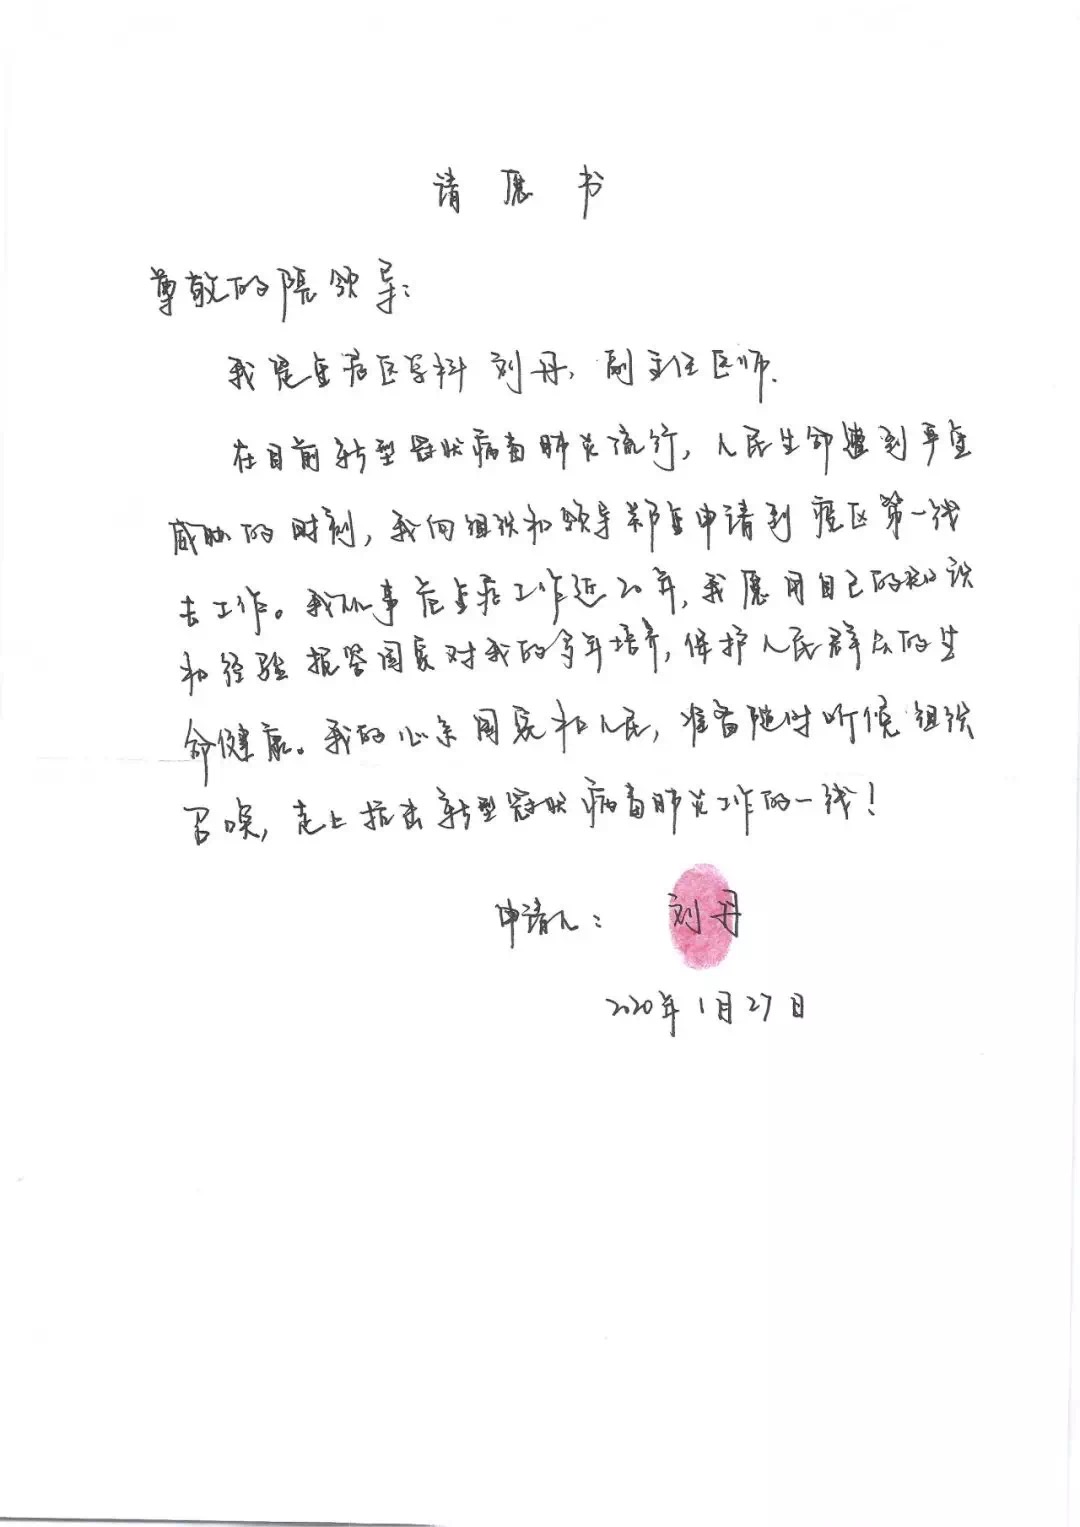 请愿书
尊敬的院领导：
我是重症医学科刘丹，副主任医师.
在目前新型冠状病毒肺炎流行，人民生命遭到严重
威胁的时刻，我向组织和领导郑重申请到疫区第一线
去工作。我从事危重症工作近20年，我愿用自己的知识
和经验报答国家对我的多年培养，保护人民群众的生
命健康。我的心系国家和人民，准备随时听候组织
召唤，走上抗击新型冠状病毒肺炎工作的一线！
申请人：刘丹
2020年1月27日